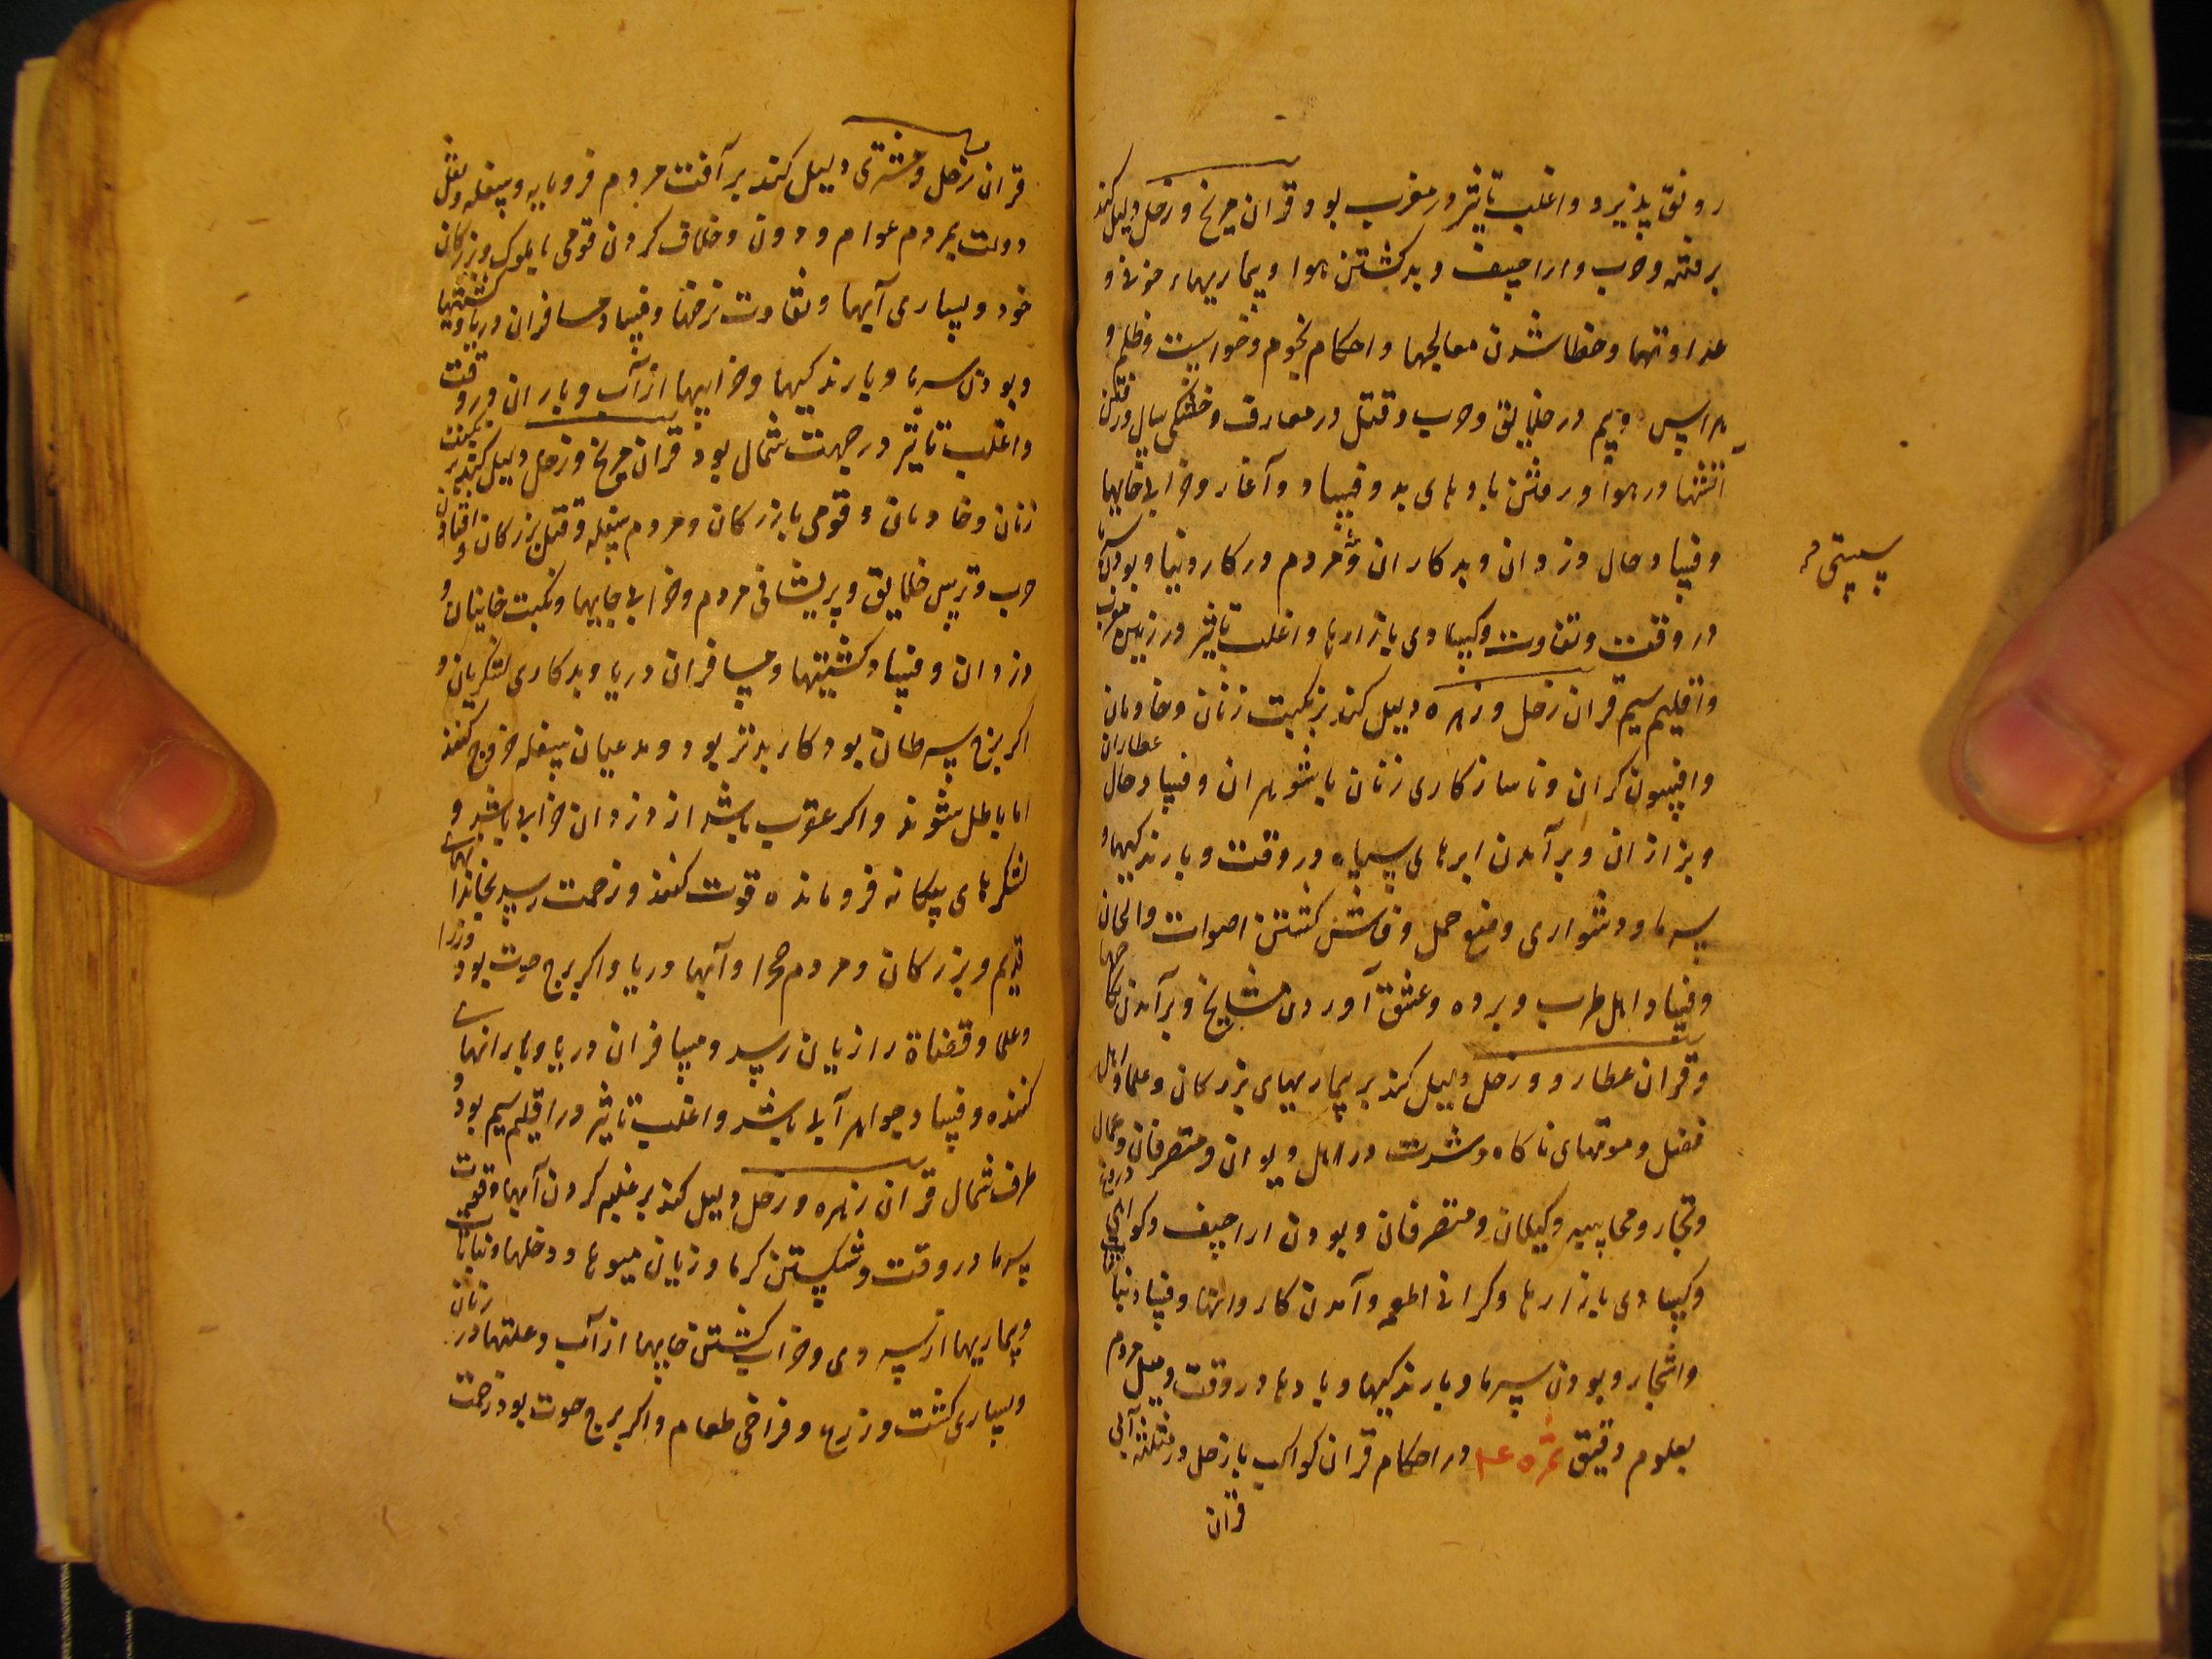 رونق پذیرد و اغلب تاثیر در مغرب بود قران مریخ و زحل دلیل کند
بر فتنه و حرب و اراجیف و بد کشتن هوا و بیماریهاء خونی و
عداوتها و خطا شدن معالجها و احکام نجوم و خواست و ظلم و
هراس و بیم در خلایق و حرب و قتل در معارف و خشکی سال و رفتن
آتشها در هوا و رفتن بادهای بد و فساد و آغار و خرابی خانها
و فساد حال دزدان و بدکاران و مردم در کار دنیا و بودن
سستی
در وقت و تفاوت و کسادی بازارها و اغلب تاثیر در زمین مغرب
و اقلیم سیم قران زحل و زهره دلیل کند بر نکبت زنان و خادمان
و افسون کران و ناسازکاری زنان با شوهران و فساد حال عطاران
و بزازان و برآمدن ابرهای سیاه در وقت و بارندکیها و
سرما و دشواری وضع حمل و فاش کشتن اصوات و الحان
و فساد اهل طرب و برده و عشق آوردن مشایخ و برآمدن
و قران عطارد و زحل دلیل کند بر بیماریهای بزرکان و علما و اهل
فضل و موتهای ناکاه و شدت در اهل دیوان و متصرفان و عمال
و تجار و محاسبه وکیلان و متصرفان و بودن اراجیف و کواهی دروغ
و کسادی بازارها و کرانی اطعمه و آمدن کاروانها و فساد نبات
و اشجار و بودن سرما و بارندکیها و بادها در وقت و میل مردم
بعلوم دقیق ثمره در احکام قران کواکب با زحل در مثلثه آبی
قران
قران زحل و مشتری دلیل کند بر آفت مردم فرومایه و سفله و نقل
دولت بمردم عوام و دون و خلاف کردن قومی با ملوک و بزرکان
خود و بسیاری آبها و تفاوت نرخها و فساد مسافران دریا و کشتیها
و بودن سرما و بارندکیها و خرابیها از آب و باران در وقت
و اغلب تاثیر در جهت شمال بود قران مریخ و زحل دلیل کند بر نکبت
زنان و خادمان و قومی با بزرکان و مردم سفله و قتل بزرکان و افتادن
حرب و ترس خلایق و پریشانی مردم و خرابی جایها و نکبت خاینان و
دزدان و فساد کشتیها و مسافران دریا و بدکاری لشکریان و
اکر برج سرطان بود کار بدتر بود و مدعیان سفله خروج کنند
اما باطل شوند و اکر عقرب باشد از دزدان خرابی باشد و
لشکرهای بیکانه فرومانده قوت کنند و زحمت رسد بخاندانهای
قدیم و بزرکان و مردم صحرا و آبها و دریا و اکر برج حوت بود وزرا
و علما و قضاة را زیان رسد و مسافران دریا و بارانهای
کننده و فساد جواهر آبی باشد و اغلب تاثیر در اقلیم سیم بود و
طرف شمال قران زهره و زحل دلیل کند بر غلبه کردن آبها و قوت
سرما در وقت و شکستن کرما و زیان میوها و دخلها و نباتات
و بیماریها از سردی و خراب کشتن جایها از آب و علتها در زنان
و بسیاری کشت و زرع و فراخی طعام و اکر برج حوت بود زحمت